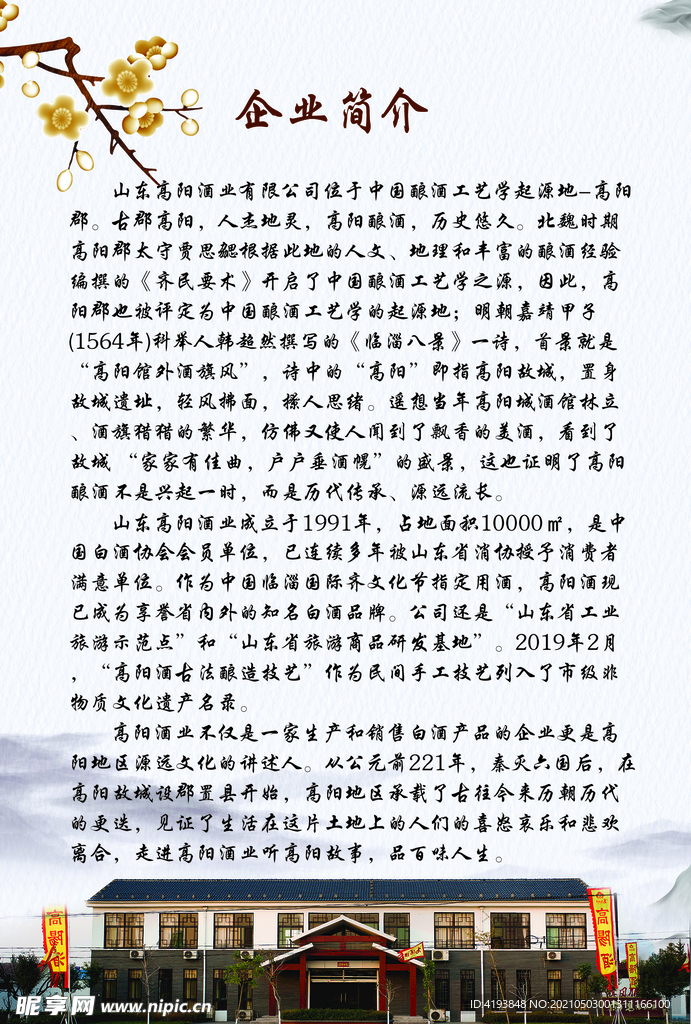 企业简介
山东高阳酒业有限公司位于中国酿酒工艺学起源地-高阳
郡。古郡高阳，人杰地灵，高阳酿酒，历史悠久。北魏时期
高阳郡太守贾思勰根据此地的人文、地理和丰富的酿酒经验
编撰的《齐民要术》开启了中国酿酒工艺学之源，因此，高
阳郡也被评定为中国酿酒工艺学的起源地；明朝嘉靖甲子
(1564年)科举人韩超然撰写的《临淄八景》一诗，首景就是
“高阳馆外酒旗风”，诗中的“高阳”即指高阳故城，置身
故城遗址，轻风拂面，撩人思绪。遥想当年高阳城酒馆林立
、酒旗猎猎的繁华，仿佛又使人闻到了飘香的美酒，看到了
故城“家家有佳曲，户户垂酒幌”的盛景，这也证明了高阳
酿酒不是兴起一时，而是历代传承、源远流长。
山东高阳酒业成立于1991年，占地面积10000㎡，是中
国白酒协会会员单位，已连续多年被山东省消协授予消费者
满意单位。作为中国临淄国际齐文化节指定用酒，高阳酒现
已成为享誉省内外的知名白酒品牌。公司还是“山东省工业
旅游示范点”和“山东省旅游商品研发基地”。2019年2月
，“高阳酒古法酿造技艺”作为民间手工技艺列入了市级非
物质文化遗产名录。
高阳酒业不仅是一家生产和销售白酒产品的企业更是高
阳地区源远文化的讲述人。从公元前221年，秦灭六国后，在
高阳故城设郡置县开始，高阳地区承载了古往今来历朝历代
的更迭，见证了生活在这片土地上的人们的喜怒哀乐和悲欢
离合，走进高阳酒业听高阳故事，品百味人生。
高陽酒
高陽酒
昵享网 www.nipic.cn
ID:4193848 NO:20210503001311166100
昵享网
www.nipic.cn